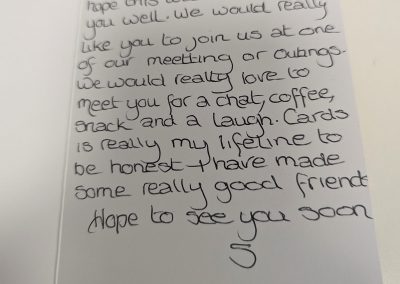 hope this
you well. We would really
like you to join us at one
of our meetting or outings.
We would really love to
meet you for a chat, coffee,
snack and a laugh. Cards
is really my lifeline to
be honest I have made
some really good friends
Hope to see you soon
S